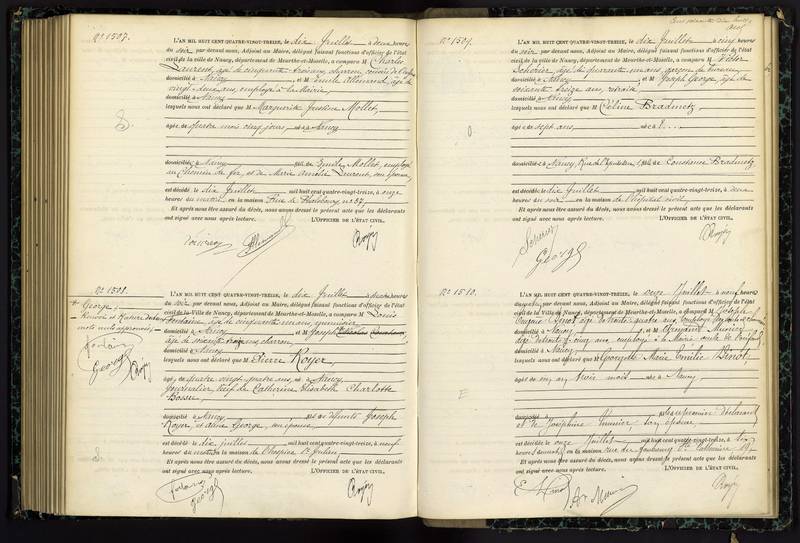 N° 1507.
L'AN MIL HUIT CENT QUATRE-VINGT-TREIZE, le dix Juillet à deux heures
du soir par devant nous, Adjoint au Maire, délégué faisant fonctions d'officier de l'état
civil de la ville de Nancy, département de Meurthe-et-Moselle, a comparu M Charles
Laurent, âgé de cinquante
domicilié à Nancy, et M Emile Allemand, âgé de
vingt-deux ans, employé à la Mairie,
domicilié à Nancy
lesquels nous ont déclaré que M Marguerite Justine Mollet,
âgée de quatre mois cinq jours, née à Nancy
domiciliée à Nancy, fille de Emile Mollet, employé
au Chemin de fer, et de Marie Amélie Laurent, son épouse,
est décédée le dix Juillet mil huit cent quatre-vingt-treize, à onze
heures du matin en la maison Rue de Phalsbourg, n° 37,
Et après nous être assuré du décès, nous avons dressé le présent acte que les déclarants
ont signé avec nous après lecture. L'OFFICIER DE L'ÉTAT CIVIL,
N° 1508.
George,
mots nuls approuvés,
L'AN MIL HUIT CENT QUATRE-VINGT-TREIZE, le dix Juillet à heures
du soir par devant nous, Adjoint au Maire, délégué faisant fonctions d'officier de l'état
civil de la Ville de Nancy, département de Meurthe-et-Moselle, a comparu M Louis
Fontaine, âgé de cinquante ans,
domicilié à Nancy, et M Joseph
âgé de soixante ans, charron,
domicilié à Nancy
lesquels nous ont déclaré que M Pierre Royer,
âgé de quatre-vingt-quatre ans, né à Nancy,
journalier, veuf de Catherine Elisabeth Charlotte
Bosser,
domicilié à Nancy, fils de défunts Joseph
Royer, et Anne George, son épouse,
est décédé le dix juillet mil huit cent quatre-vingt-treize, à neuf
heures du matin en la maison de l'hospice St Julien,
Et après nous être assuré du décès, nous avons dressé le présent acte que les déclarants
ont signé avec nous après lecture. L'OFFICIER DE L'ÉTAT CIVIL,
George
N° 1509.
L'AN MIL HUIT CENT QUATRE-VINGT-TREIZE, le dix Juillet à cinq heures
du soir par devant nous, Adjoint au Maire, délégué faisant fonctions d'officier de l'état
civil de la ville de Nancy, département de Meurthe-et-Moselle, a comparu M Victor
Scherrer, âgé de quarante ans, garçon de bureau,
domicilié à Nancy, et M Joseph George, âgé de
soixante treize ans, retraité,
domicilié à Nancy
lesquels nous ont déclaré que M Céline Bradmetz
âgée de sept ans, née à
domiciliée à Nancy, fille de Constance Bradmetz
est décédée le dix Juillet mil huit cent quatre-vingt-treize, à deux
heures du soir en la maison de l'hôpital civil,
Et après nous être assuré du décès, nous avons dressé le présent acte que les déclarants
ont signé avec nous après lecture. L'OFFICIER DE L'ÉTAT CIVIL,
George
N° 1510.
L'AN MIL HUIT CENT QUATRE-VINGT-TREIZE, le onze Juillet à neuf heures
du matin par devant nous, Adjoint au Maire, délégué faisant fonctions d'officier de l'état
civil de la Ville de Nancy, département de Meurthe-et-Moselle, a comparu M Joseph
Eugène Binot, âgé de trente quatre ans, employé
domicilié à Nancy, et M Armand Munier
âgé de trente cinq ans, employé à la Mairie
domicilié à Nancy
lesquels nous ont déclaré que M Georgette Marie Emilie Binot,
âgée de un an trois mois née à Nancy
domiciliée à fille du premier déclarant
et de Joséphine Munier son épouse,
est décédée le onze Juillet mil huit cent quatre-vingt-treize, à
heures du matin en la maison rue du Faubourg Ste Catherine 19
Et après nous être assuré du décès, nous avons dressé le présent acte que les déclarants
ont signé avec nous après lecture. L'OFFICIER DE L'ÉTAT CIVIL,